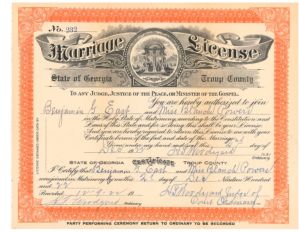 No. 232
Marriage License
State of Georgia Troup County
TO ANY JUDGE, JUSTICE OF THE PEACE, OR MINISTER OF THE GOSPEL.
You are hereby authorized to join
Benjamin G. East and Miss Blanch Powers
in the Holy State of Matrimony, according to the Constitution and
Laws of this State and for so doing this shall be your License
And you are hereby required to return this License to me with your
Certificate hereon of the fact and date of the Marriage.
Given under my hand and seal this 2nd
day of Dec
STATE OF GEORGIA Certificate TROUP COUNTY
I Certify that Benjamin G East and Miss Blanch Powers
were joined in Matrimony by me this 2nd day of Dec Nineteen Hundred
and 22
Recorded
PARTY PERFORMING CEREMONY RETURN TO ORDINARY TO BE RECORDED